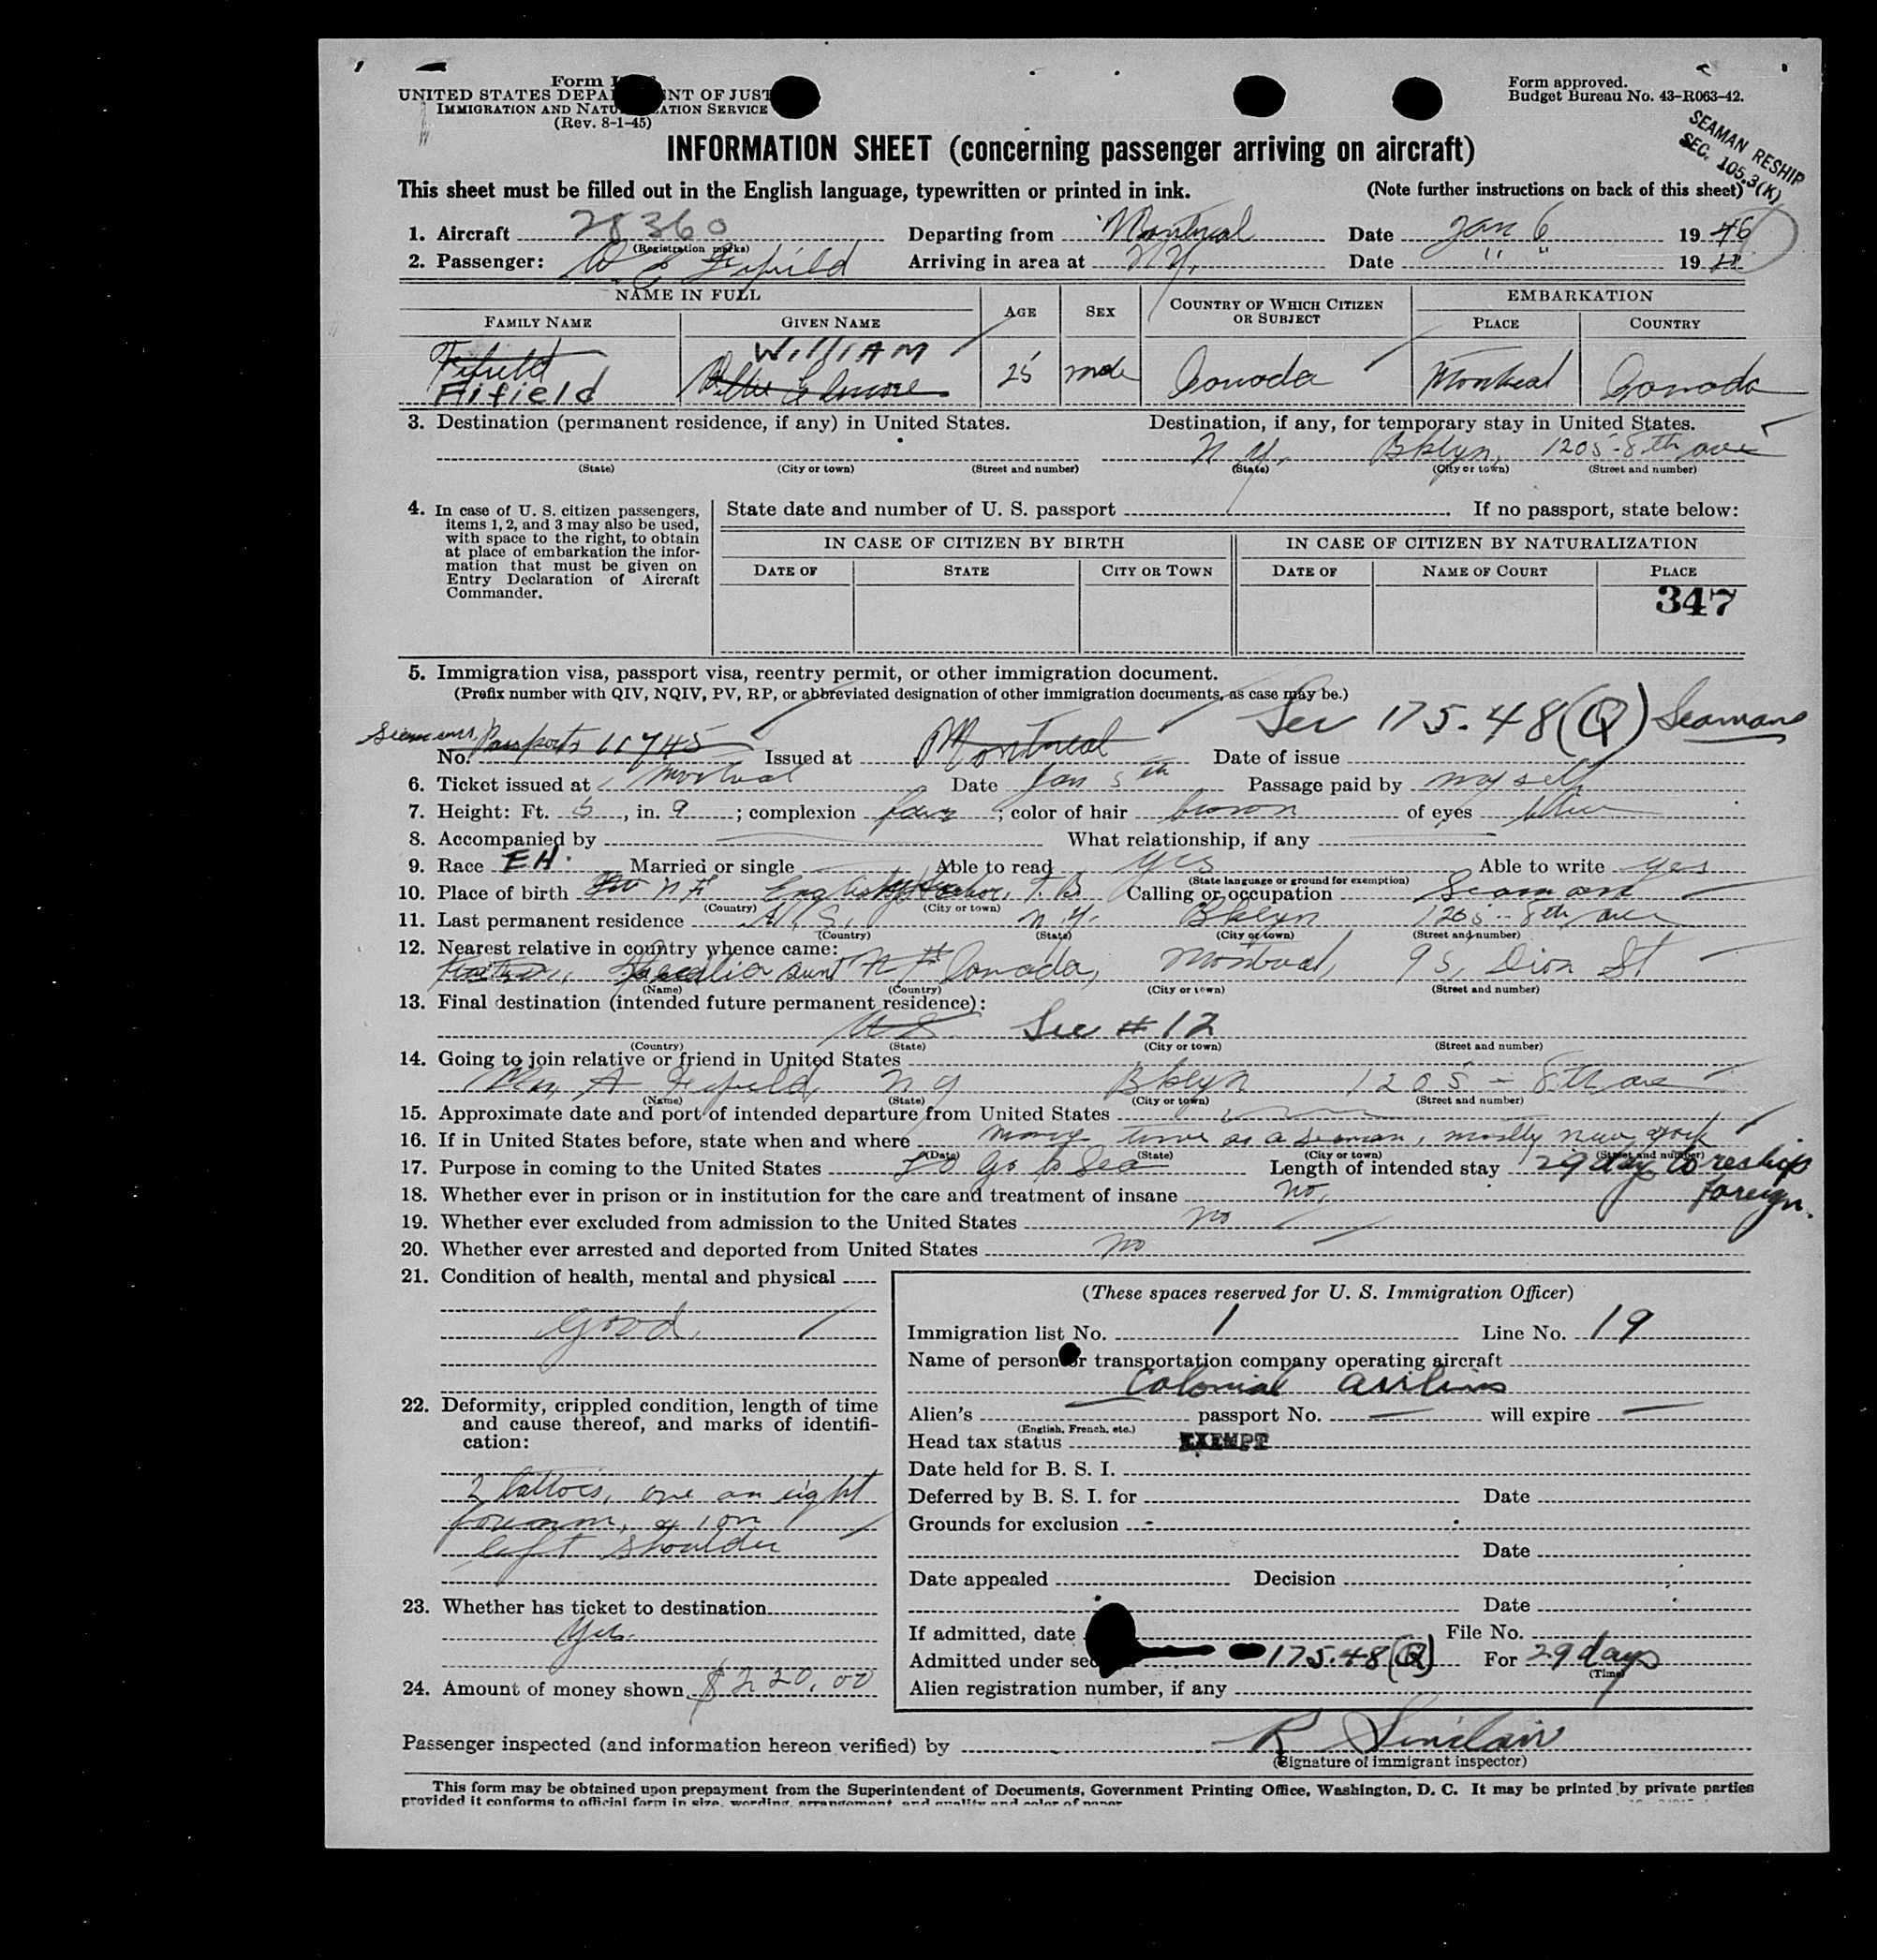 Form I
UNITED STATES DEPA NT OF JUST
IMMIGRATION AND NATU ATION SERVICE
(Rev. 8-1-45)
Form approved.
Budget Bureau No. 43-R063-42.
SEAMAN RESHIP
SEC. 105.3(K)
INFORMATION SHEET (concerning passenger arriving on aircraft)
This sheet must be filled out in the English language, typewritten or printed in ink. (Note further instructions on back of this sheet)
1. Aircraft 28360 Departing from Montreal Date Jan 6 1946
(Registration marks)
2. Passenger: W E Fifield Arriving in area at N.Y. Date " " 19
NAME IN FULL AGE SEX COUNTRY OF WHICH CITIZEN OR SUBJECT EMBARKATION
FAMILY NAME GIVEN NAME PLACE COUNTRY
Fifield WILLIAM
Fifield 25 male Canada Montreal Canada
3. Destination (permanent residence, if any) in United States. Destination, if any, for temporary stay in United States.
N.Y. Bklyn, 1205-8th ave
(State) (City or town) (Street and number) (State) (City or town) (Street and number)
4. In case of U. S. citizen passengers, items 1, 2, and 3 may also be used, with space to the right, to obtain at place of embarkation the information that must be given on Entry Declaration of Aircraft Commander.
State date and number of U. S. passport If no passport, state below:
IN CASE OF CITIZEN BY BIRTH IN CASE OF CITIZEN BY NATURALIZATION
DATE OF STATE CITY OR TOWN DATE OF NAME OF COURT PLACE
347
5. Immigration visa, passport visa, reentry permit, or other immigration document.
(Prefix number with QIV, NQIV, PV, RP, or abbreviated designation of other immigration documents, as case may be.)
Sec 175.48(Q) Seamans
Seamens Passports 11745
No. Issued at Montreal Date of issue
6. Ticket issued at Montreal Date Jan 5th Passage paid by myself
7. Height: Ft. 5, in. 9; complexion fair; color of hair brown of eyes blue
8. Accompanied by What relationship, if any
9. Race EH. Married or single Able to read yes Able to write yes
(State language or ground for exemption)
10. Place of birth N F English Harbor, T.B. Calling or occupation Seaman
(Country) (City or town)
11. Last permanent residence U.S. N.Y. Bklyn 1205-8th ave
(Country) (State) (City or town) (Street and number)
12. Nearest relative in country whence came:
aunt Canada, Montreal, 95, Dion St
(Name) (Country) (City or town) (Street and number)
13. Final destination (intended future permanent residence):
U S See #12
(Country) (State) (City or town) (Street and number)
14. Going to join relative or friend in United States
Mrs, A Fifield, N Y Bklyn 1205 - 8th ave
(Name) (State) (City or town) (Street and number)
15. Approximate date and port of intended departure from United States
16. If in United States before, state when and where many time as a seaman, mostly new york
(Date) (State) (City or town) (Street and number)
17. Purpose in coming to the United States To go to Sea Length of intended stay 29 days to reship
foreign.
18. Whether ever in prison or in institution for the care and treatment of insane no.
19. Whether ever excluded from admission to the United States no
20. Whether ever arrested and deported from United States no
21. Condition of health, mental and physical
good.
22. Deformity, crippled condition, length of time and cause thereof, and marks of identification:
2 tattoes, one on right
forearm, & 1 on
left shoulder
23. Whether has ticket to destination
Yes.
24. Amount of money shown $220.00
(These spaces reserved for U. S. Immigration Officer)
Immigration list No. 1 Line No. 19
Name of person or transportation company operating aircraft
Colonial Airlines
Alien's passport No. will expire
(English, French, etc.)
Head tax status EXEMPT
Date held for B. S. I.
Deferred by B. S. I. for Date
Grounds for exclusion
Date
Date appealed Decision
Date
If admitted, date File No.
Admitted under sec 175.48(Q) For 29 days
(Time)
Alien registration number, if any
Passenger inspected (and information hereon verified) by R Sinclair
(Signature of immigrant inspector)
This form may be obtained upon prepayment from the Superintendent of Documents, Government Printing Office, Washington, D. C. It may be printed by private parties
provided it conforms to official form in size, wording, arrangement, and quality and color of paper.